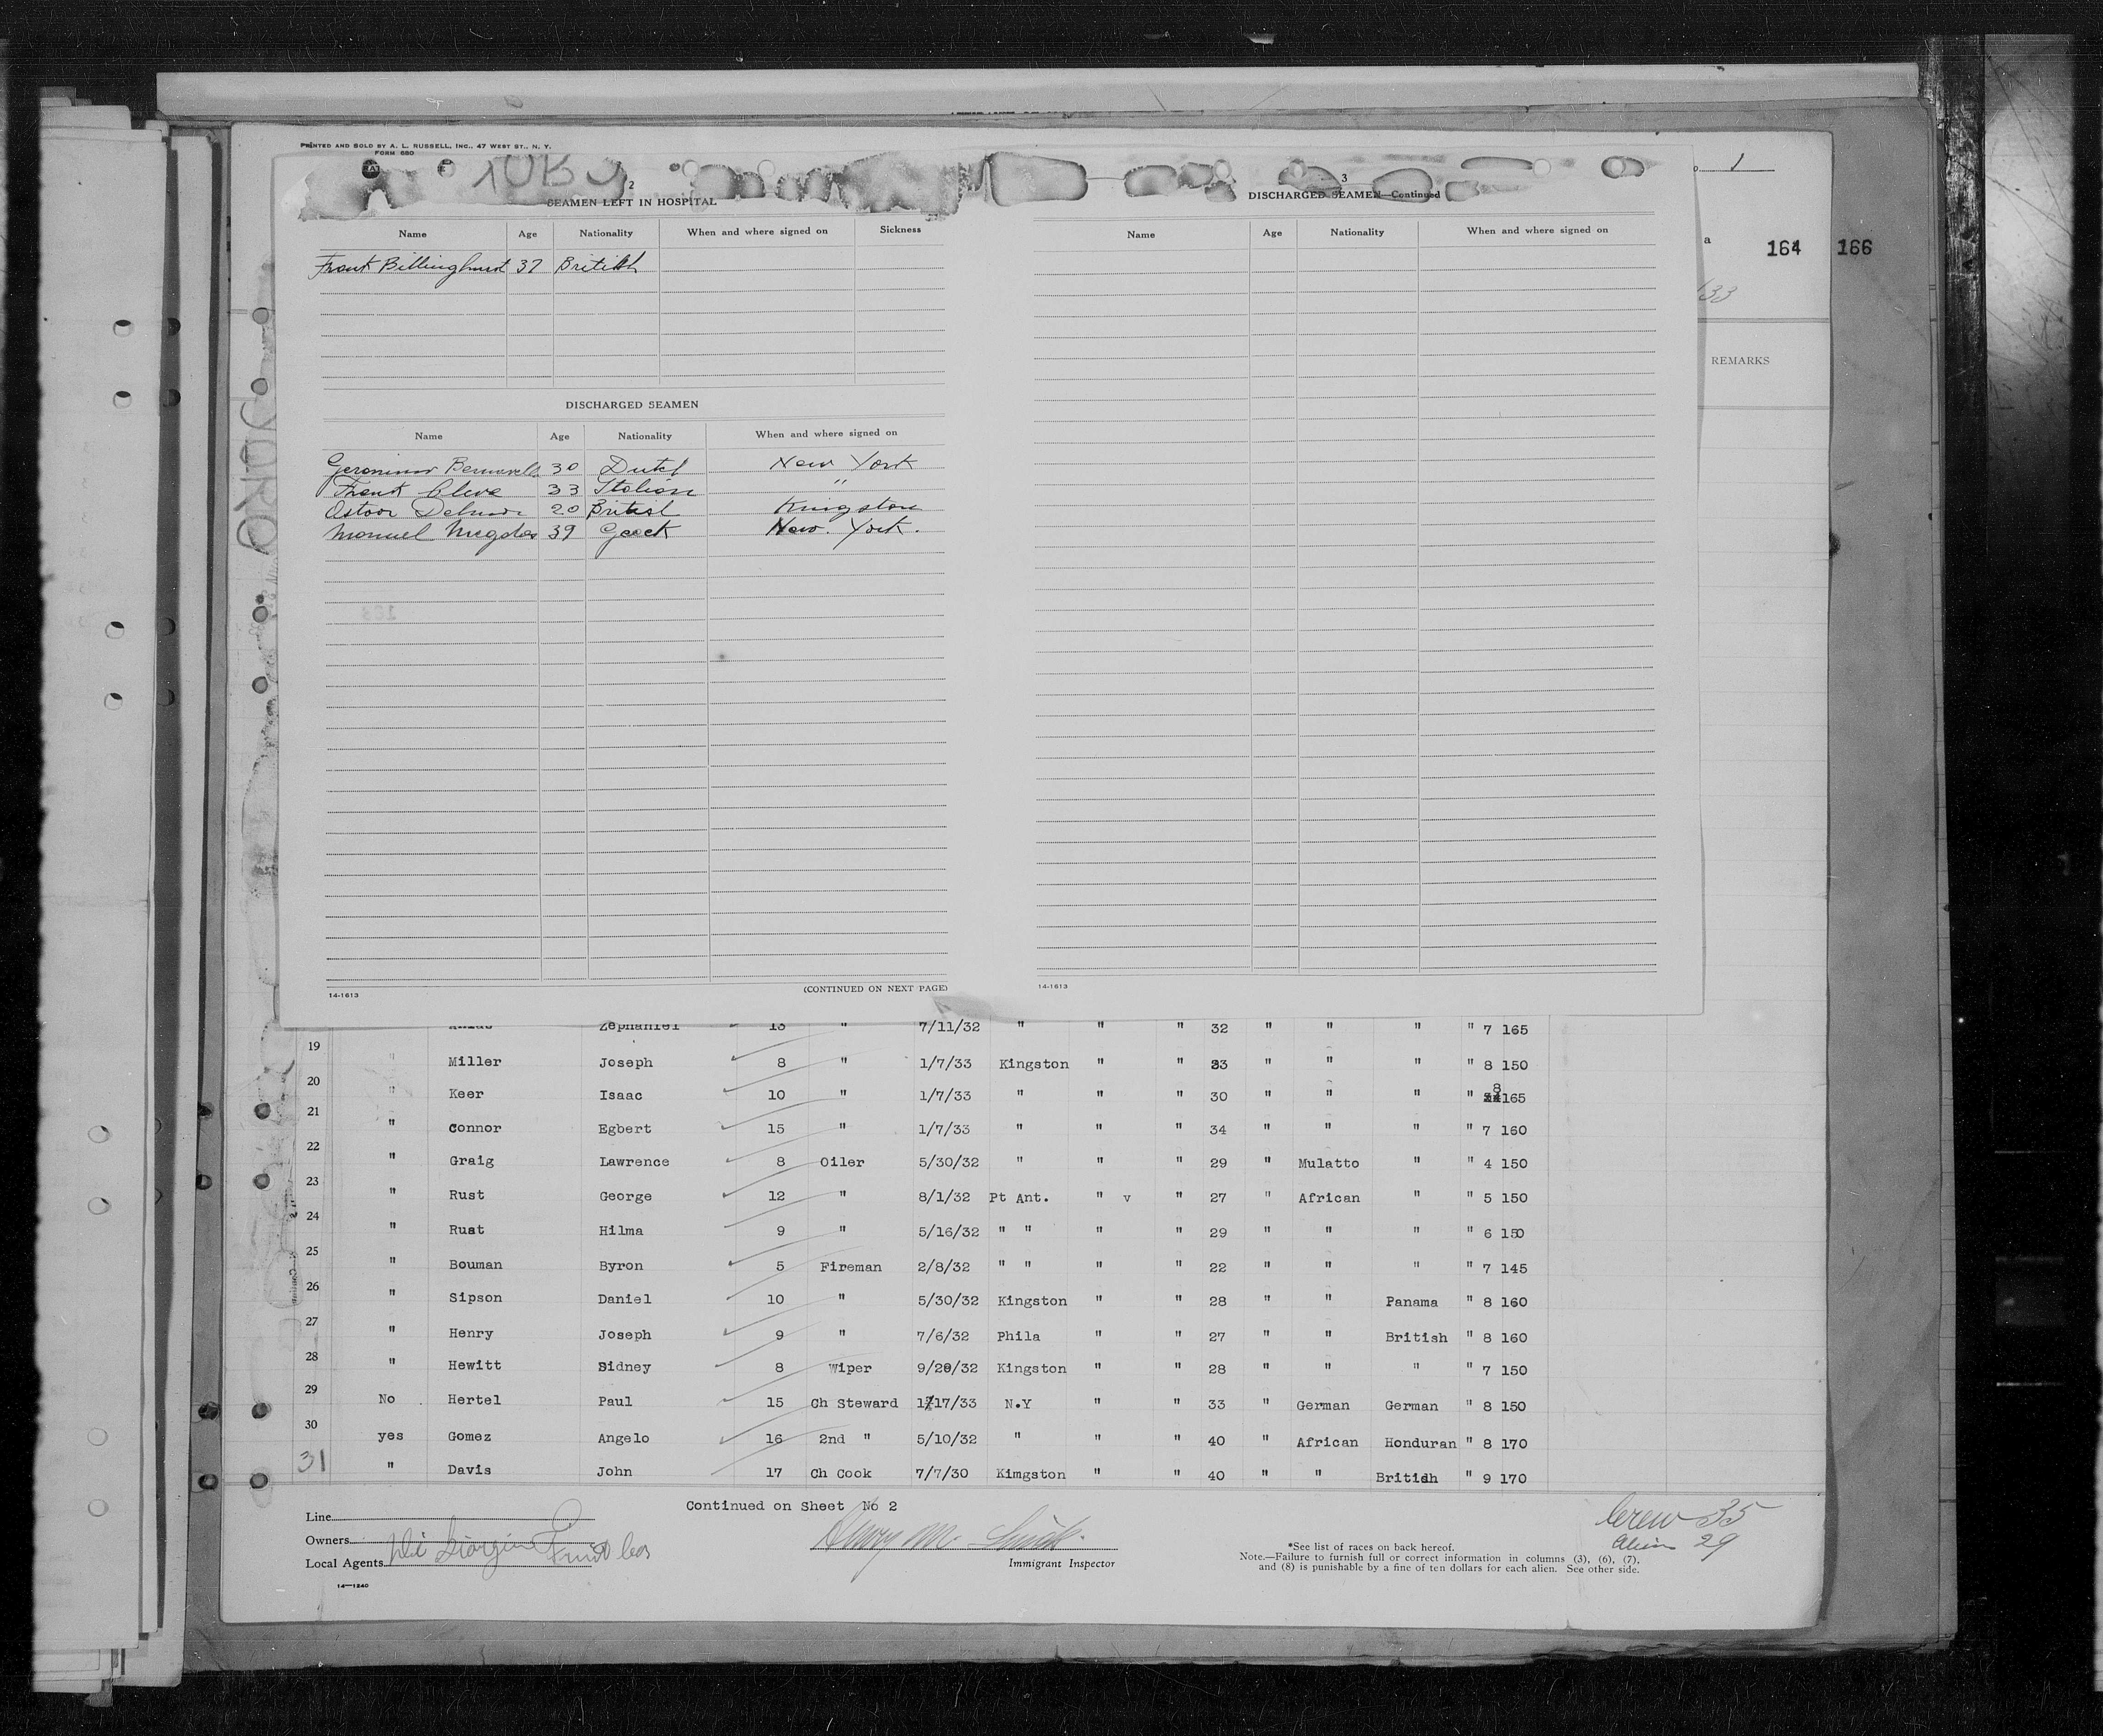 PRINTED AND SOLD BY A. L. RUSSELL, INC., 47 WEST ST., N. Y.
FORM 680
1
164 166
33
REMARKS
2
SEAMEN LEFT IN HOSPITAL
Name Age Nationality When and where signed on Sickness
Frank Billinghurst 37 British
DISCHARGED SEAMEN
Name Age Nationality When and where signed on
30 Dutch New York
Frank 33 Italian "
20 British Kingston
Manuel 39 Greek New. York.
14-1613
(CONTINUED ON NEXT PAGE)
3
DISCHARGED SEAMEN—Continued
Name Age Nationality When and where signed on
14-1613
Zephaniel 13 " 7/11/32 " " " 32 " " " " 7 165
19 " Miller Joseph 8 " 1/7/33 Kingston " " 33 " " " " 8 150
20 " Keer Isaac 10 " 1/7/33 " " " 30 " " " " 8 165
21 " Connor Egbert 15 " 1/7/33 " " " 34 " " " " 7 160
22 " Graig Lawrence 8 Oiler 5/30/32 " " " 29 " Mulatto " " 4 150
23 " Rust George 12 " 8/1/32 Pt Ant. " v " 27 " African " " 5 150
24 " Rust Hilma 9 " 5/16/32 " " " " 29 " " " " 6 150
25 " Bouman Byron 5 Fireman 2/8/32 " " " " 22 " " " " 7 145
26 " Sipson Daniel 10 " 5/30/32 Kingston " " 28 " " Panama " 8 160
27 " Henry Joseph 9 " 7/6/32 Phila " " 27 " " British " 8 160
28 " Hewitt Sidney 8 Wiper 9/20/32 Kingston " " 28 " " " " 7 150
29 No Hertel Paul 15 Ch Steward 1/17/33 N.Y " " 33 " German German " 8 150
30 yes Gomez Angelo 16 2nd " 5/10/32 " " " 40 " African Honduran " 8 170
31 " Davis John 17 Ch Cook 7/7/30 Kimgston " " 40 " " Britidh " 9 170
Continued on Sheet No 2
Line
Owners
Local Agents Di Giorgio Fruit Cos
14—1240
Immigrant Inspector
*See list of races on back hereof.
Note.—Failure to furnish full or correct information in columns (3), (6), (7),
and (8) is punishable by a fine of ten dollars for each alien. See other side.
Crew 35
Alien 29